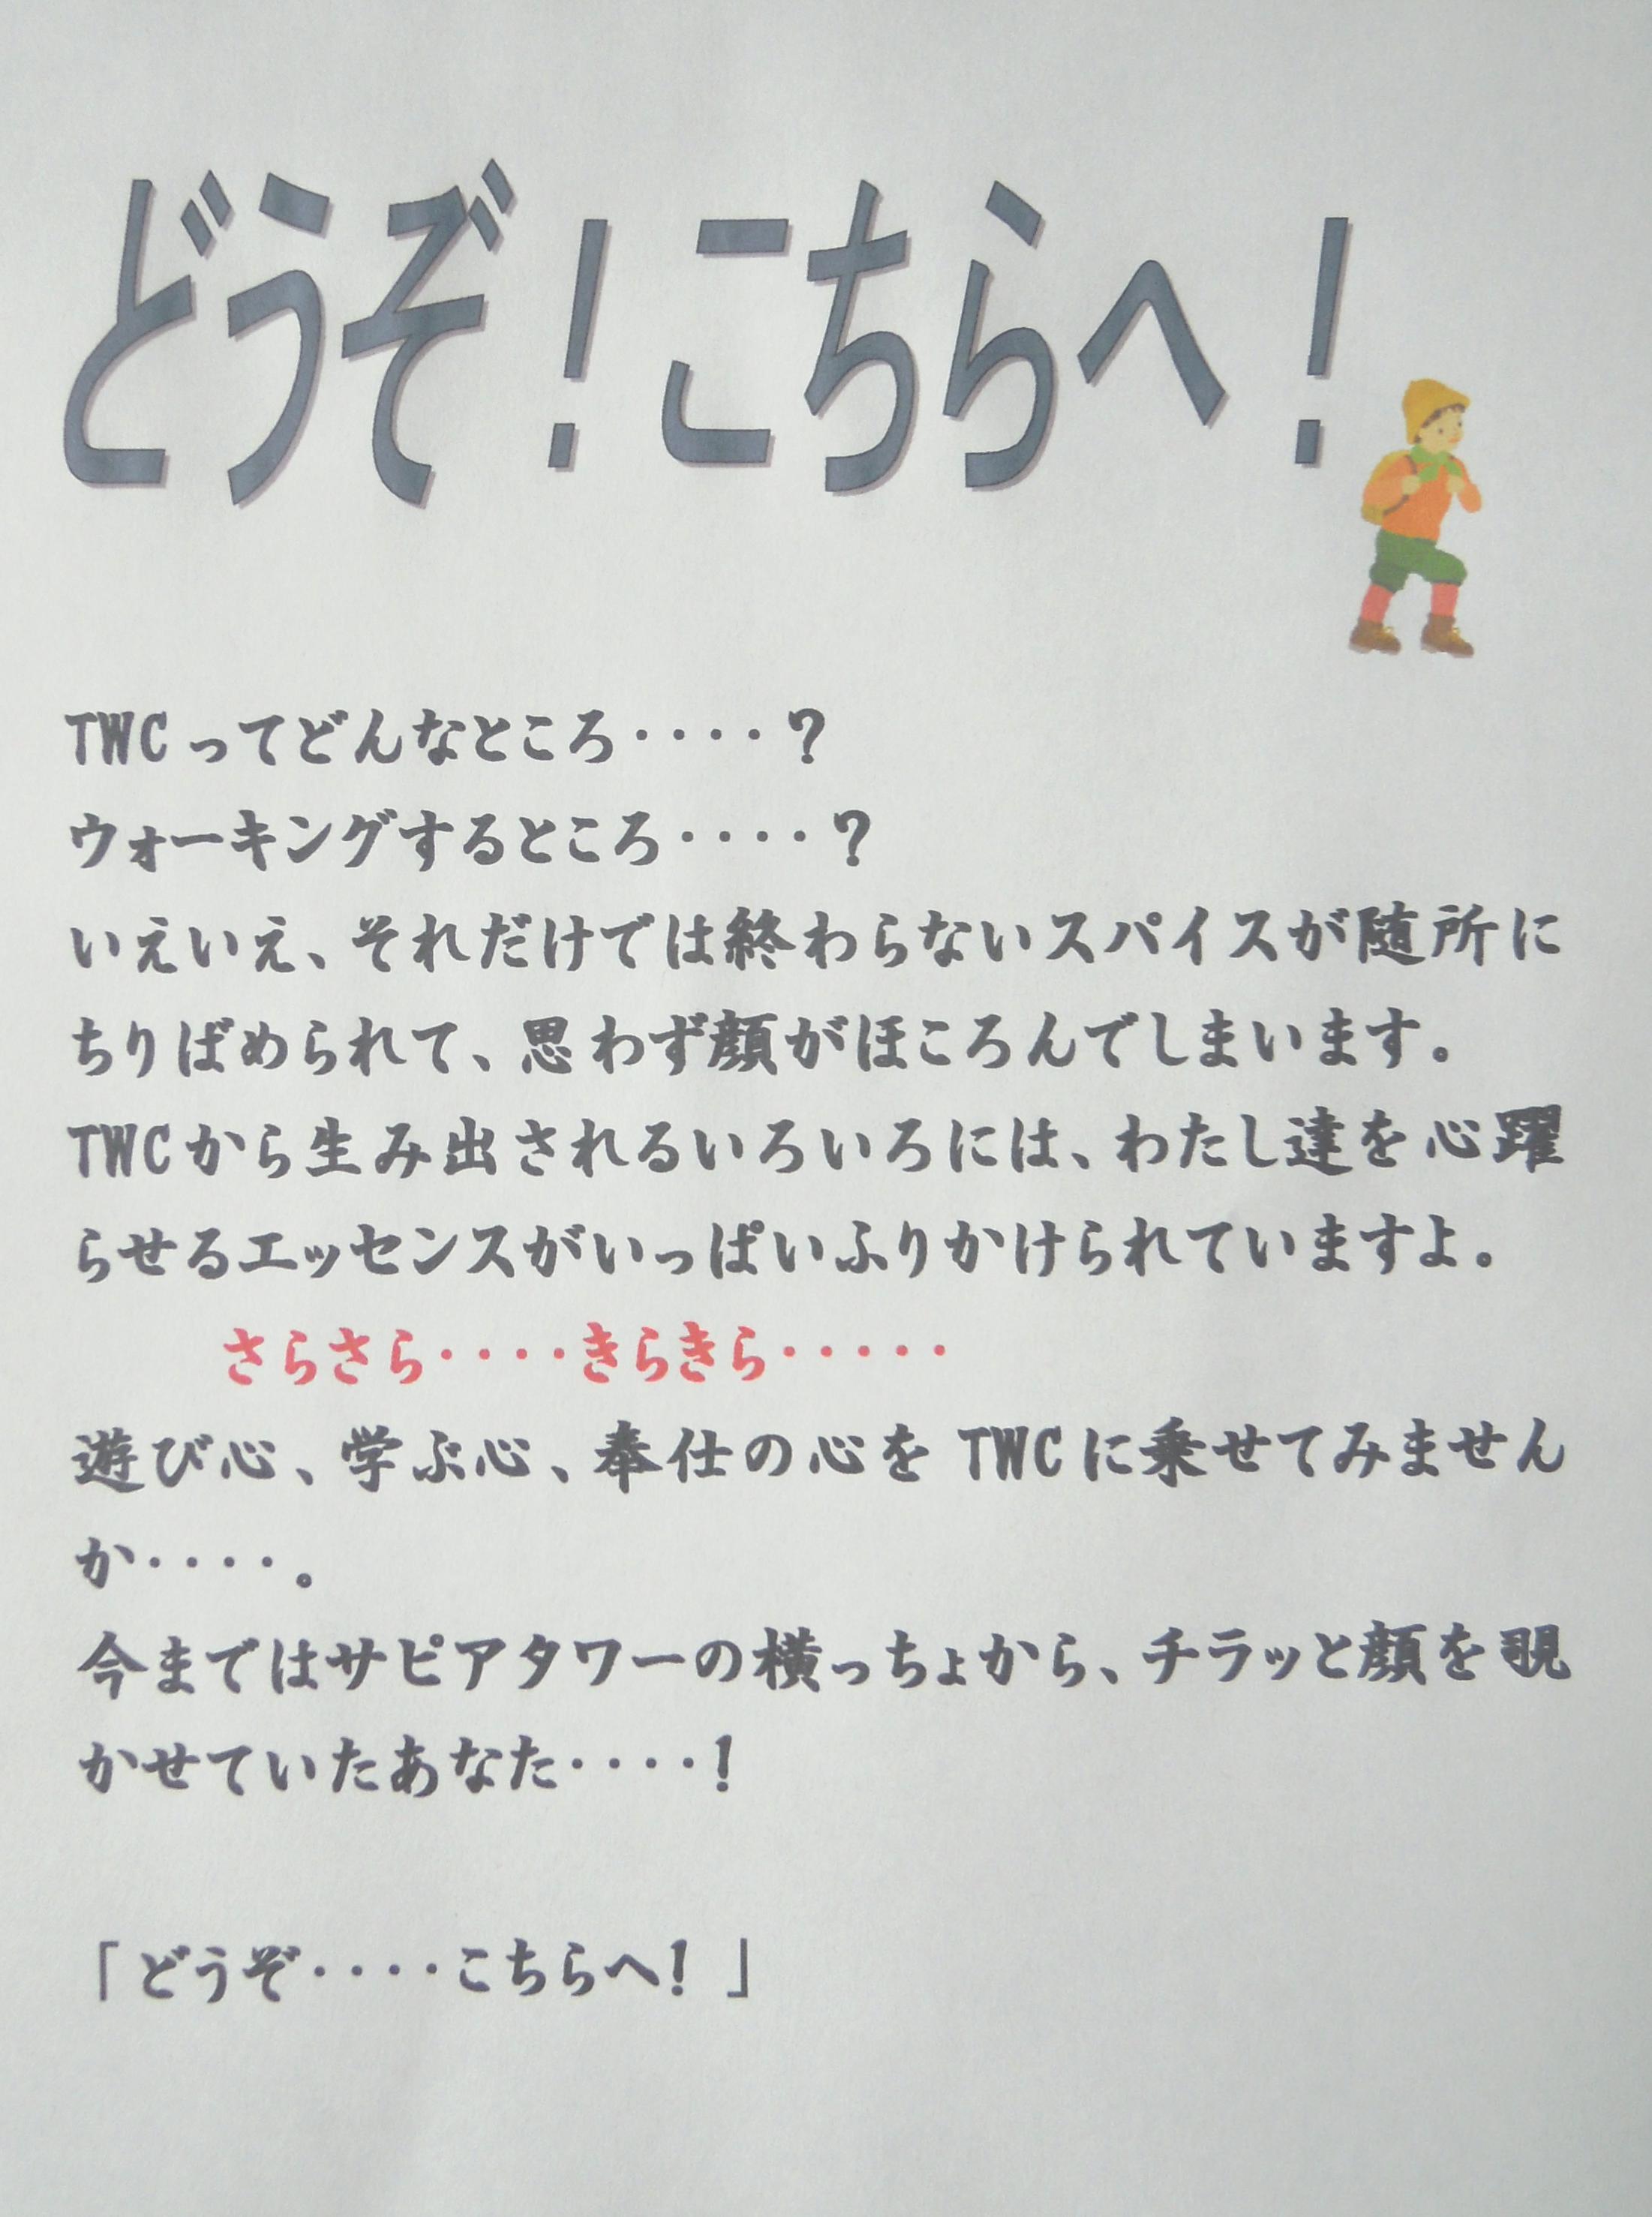 どうぞ！こちらへ！
TWCってどんなところ・・・・？
ウォーキングするところ・・・・？
いえいえ、それだけでは終わらないスパイスが随所に
ちりばめられて、思わず顔がほころんでしまいます。
TWCから生み出されるいろいろには、わたし達を心躍
らせるエッセンスがいっぱいふりかけられていますよ。
さらさら・・・・きらきら・・・・・
遊び心、学ぶ心、奉仕の心を TWCに乗せてみません
か・・・・。
今まではサピアタワーの横っちょから、チラッと顔を覗
かせていたあなた・・・・！
「どうぞ・・・・こちらへ！」